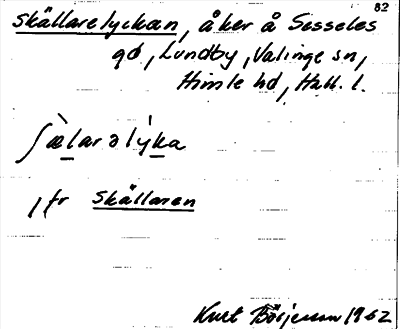 82
Skällarelyckan, åker å Sesseles
gd, Lundby, Valinge sn,
Himle hd, Hall. l.
ʃæ̀larəlýka
Jfr Skällaren
Kurt Börjesson 1962